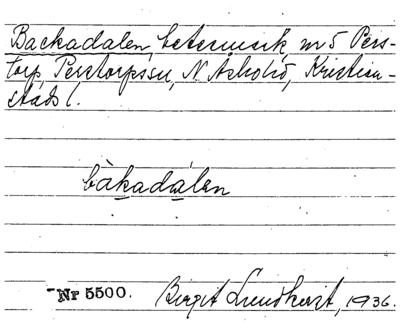 Backadalen, betesmark, nr 5 Pers-
torp, Perstorps sn, N Åsbo hd, Kristian-
stads l.
bàkadálen
Nr 5500.
Birgit Lundkvist, 1936.